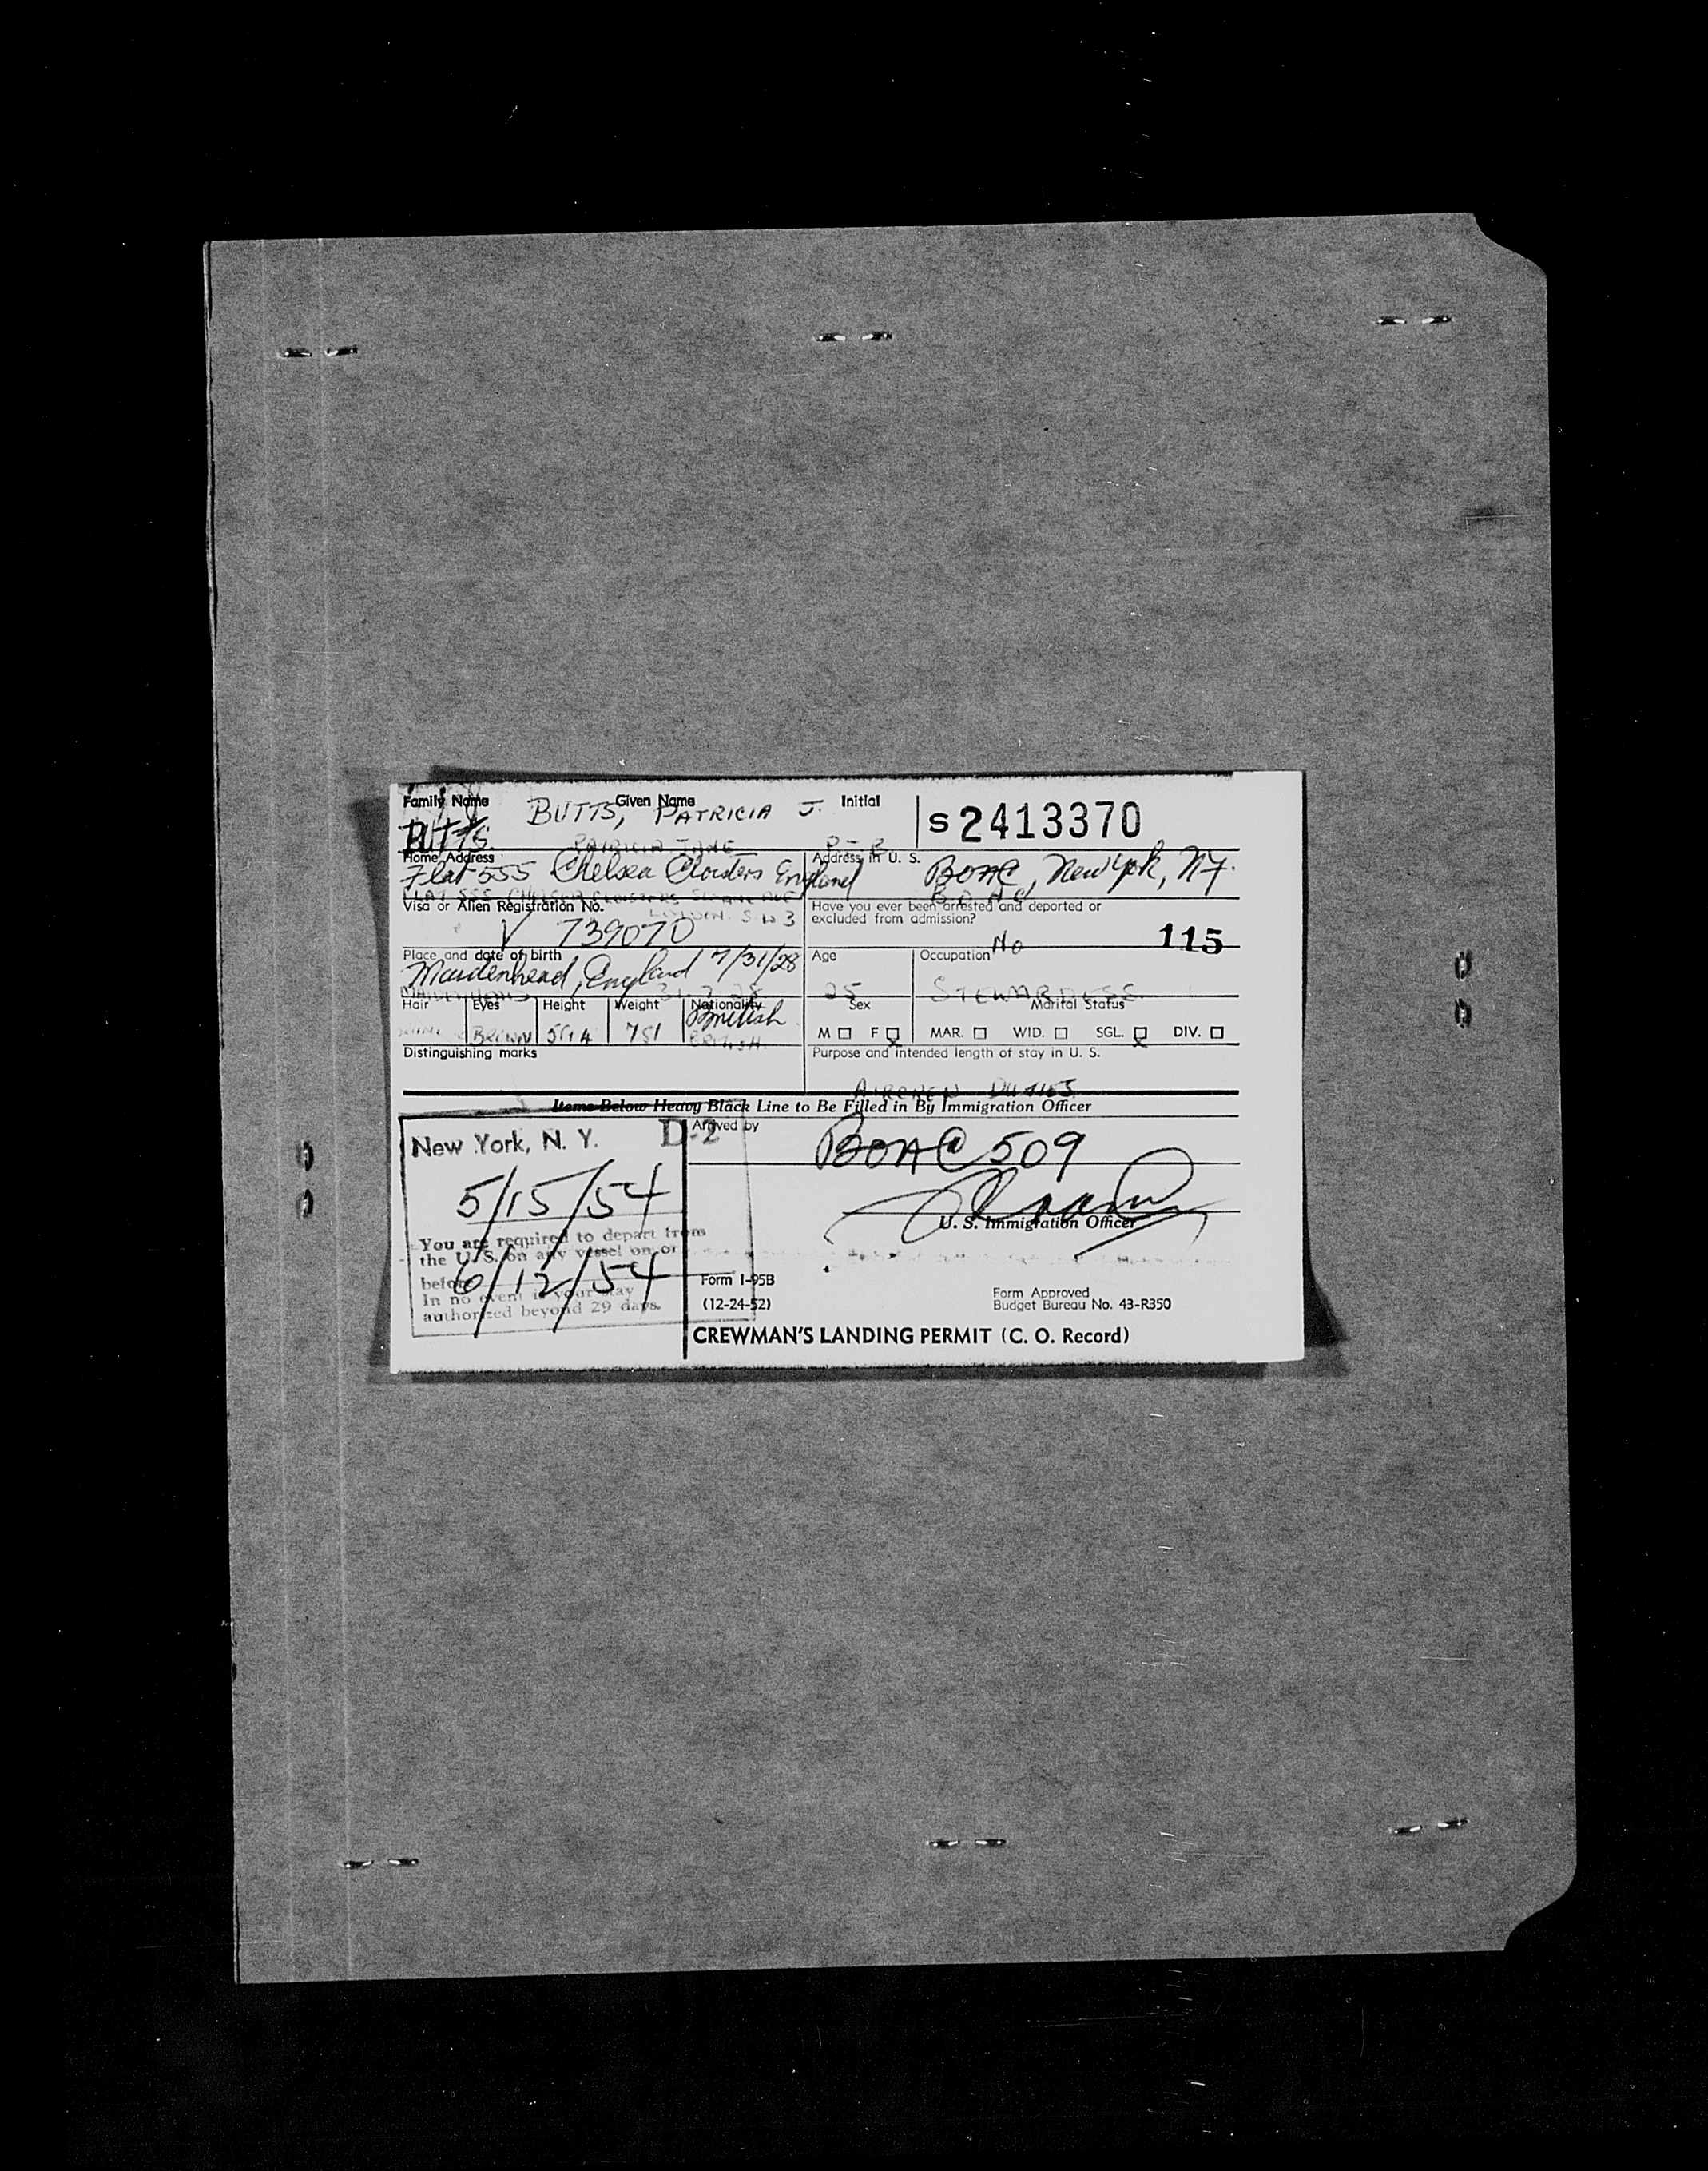 Family Name Given Name Initial
BUTTS, PATRICIA J. S 2413370
BUTTS
PATRICIA JANE
Home Address Address in U. S.
Flat 555 Chelsea Cloisters England BOAC, New York, NY.
FLAT 555 CHELSEA CLOISTERS SLOANE AVE B.O.A.C.
LONDON. S W 3
Visa or Alien Registration No. Have you ever been arrested and deported or
excluded from admission?
V 739070 No 115
Place and date of birth Age Occupation
Maidenhead, England 7/31/28
MAIDENHEAD 31.7.28 25 STEWARDESS
Hair Eyes Height Weight Nationality Sex Marital Status
British
BROWN BRITISH M F MAR. WID. SGL. DIV.
Distinguishing marks Purpose and intended length of stay in U. S.
AIRCREW DUTIES
Items Below Heavy Black Line to Be Filled in By Immigration Officer
New York, N. Y. D-2 Arrived by BOAC 509
5/15/54
U. S. Immigration Officer
You are required to depart from
the U. S. on any vessel on or
before 6/12/54
In no event is your stay
authorized beyond 29 days.
Form I-95B
(12-24-52)
Form Approved
Budget Bureau No. 43-R350
CREWMAN'S LANDING PERMIT (C. O. Record)